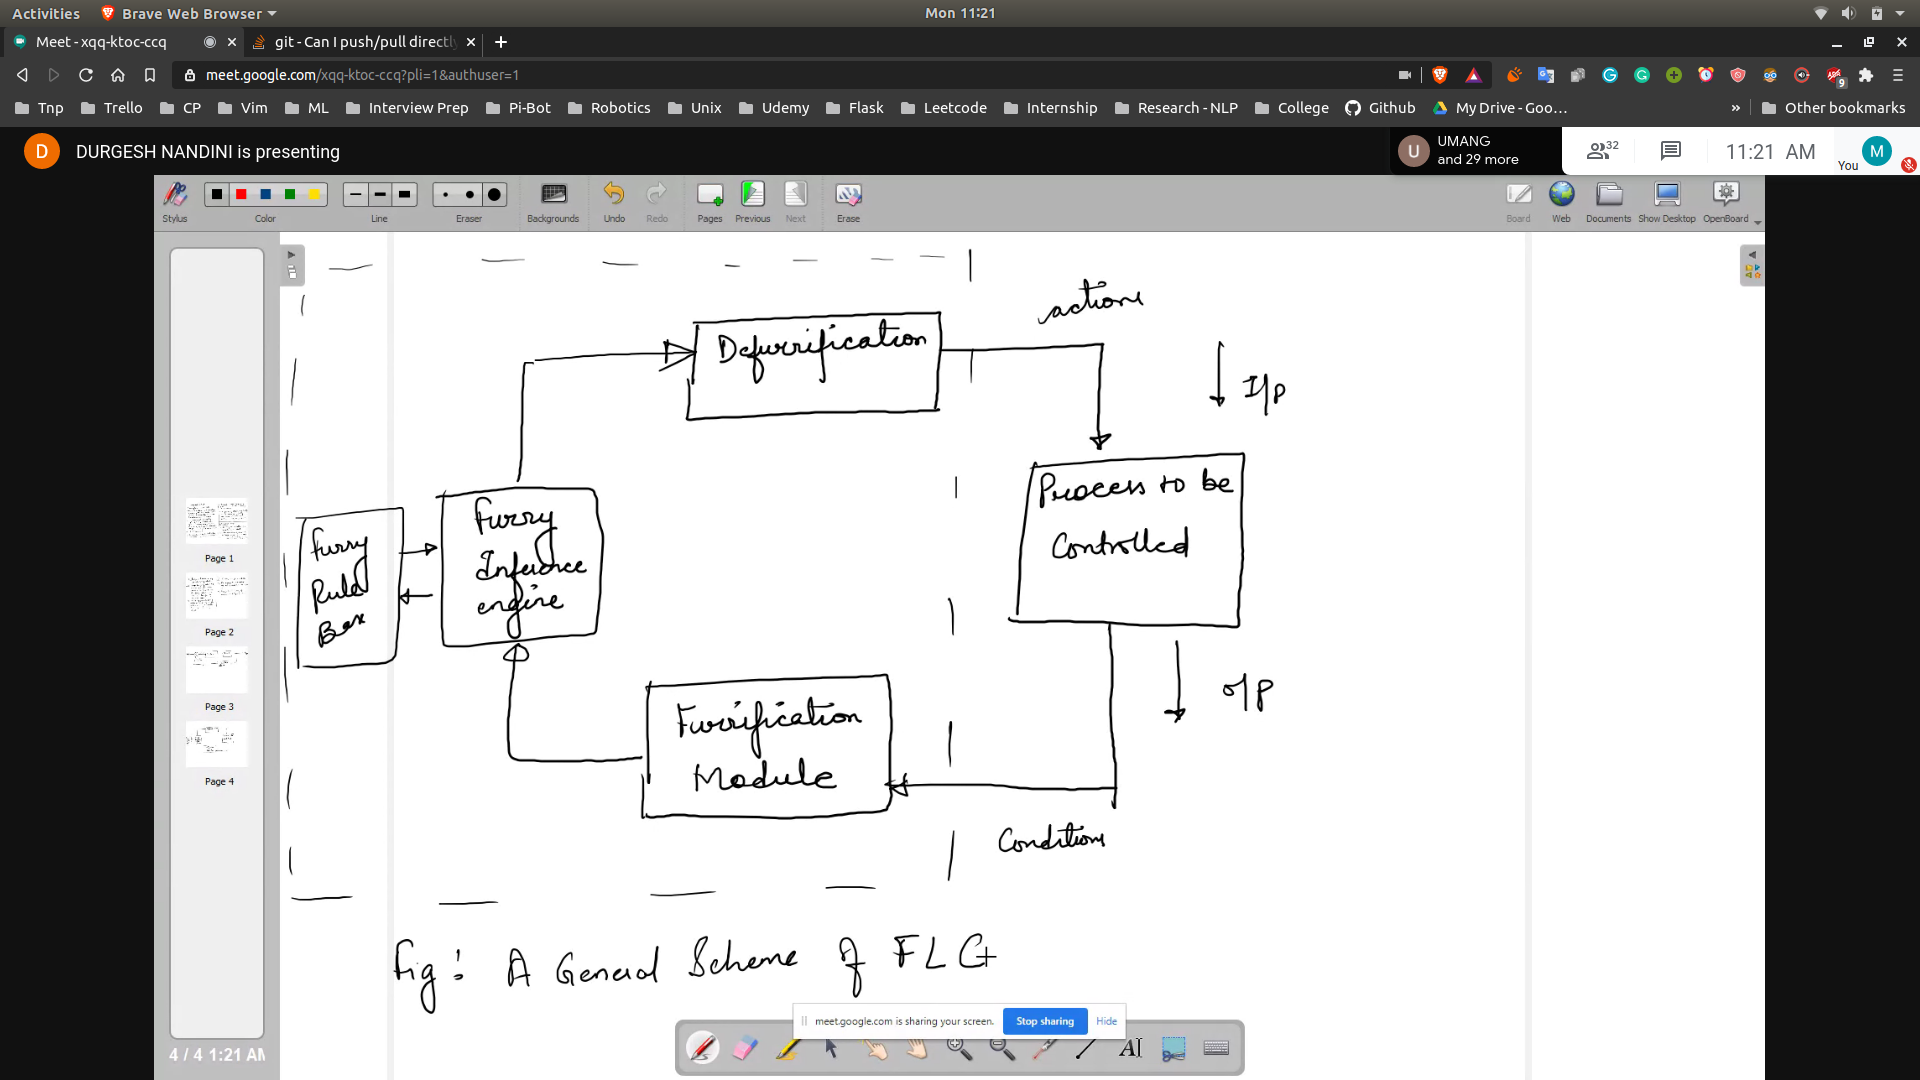 Activities
Brave Web Browser
Mon 11:21
Meet - xqq-ktoc-ccq
git - Can I push/pull directly
meet.google.com/xqq-ktoc-ccq?pli=1&authuser=1
9
Tnp
Trello
CP
Vim
ML
Interview Prep
Pi-Bot
Robotics
Unix
Udemy
Flask
Leetcode
Internship
Research - NLP
College
Github
My Drive - Goo...
»
Other bookmarks
D
DURGESH NANDINI is presenting
U
UMANG
and 29 more
32
11:21 AM
You
M
Stylus
Color
Line
Eraser
Backgrounds
Undo
Redo
Pages
Previous
Next
Erase
Board
Web
Documents
Show Desktop
OpenBoard
Page 1
Page 2
Page 3
Page 4
4 / 4
1:21 AM
actions
Defuzzification
I/p
Process to be
Controlled
Fuzzy
Inference
engine
Fuzzy
Rule
o/p
Fuzzification
Module
Conditions
Fig : A General Scheme of FLC
meet.google.com is sharing your screen.
Stop sharing
Hide